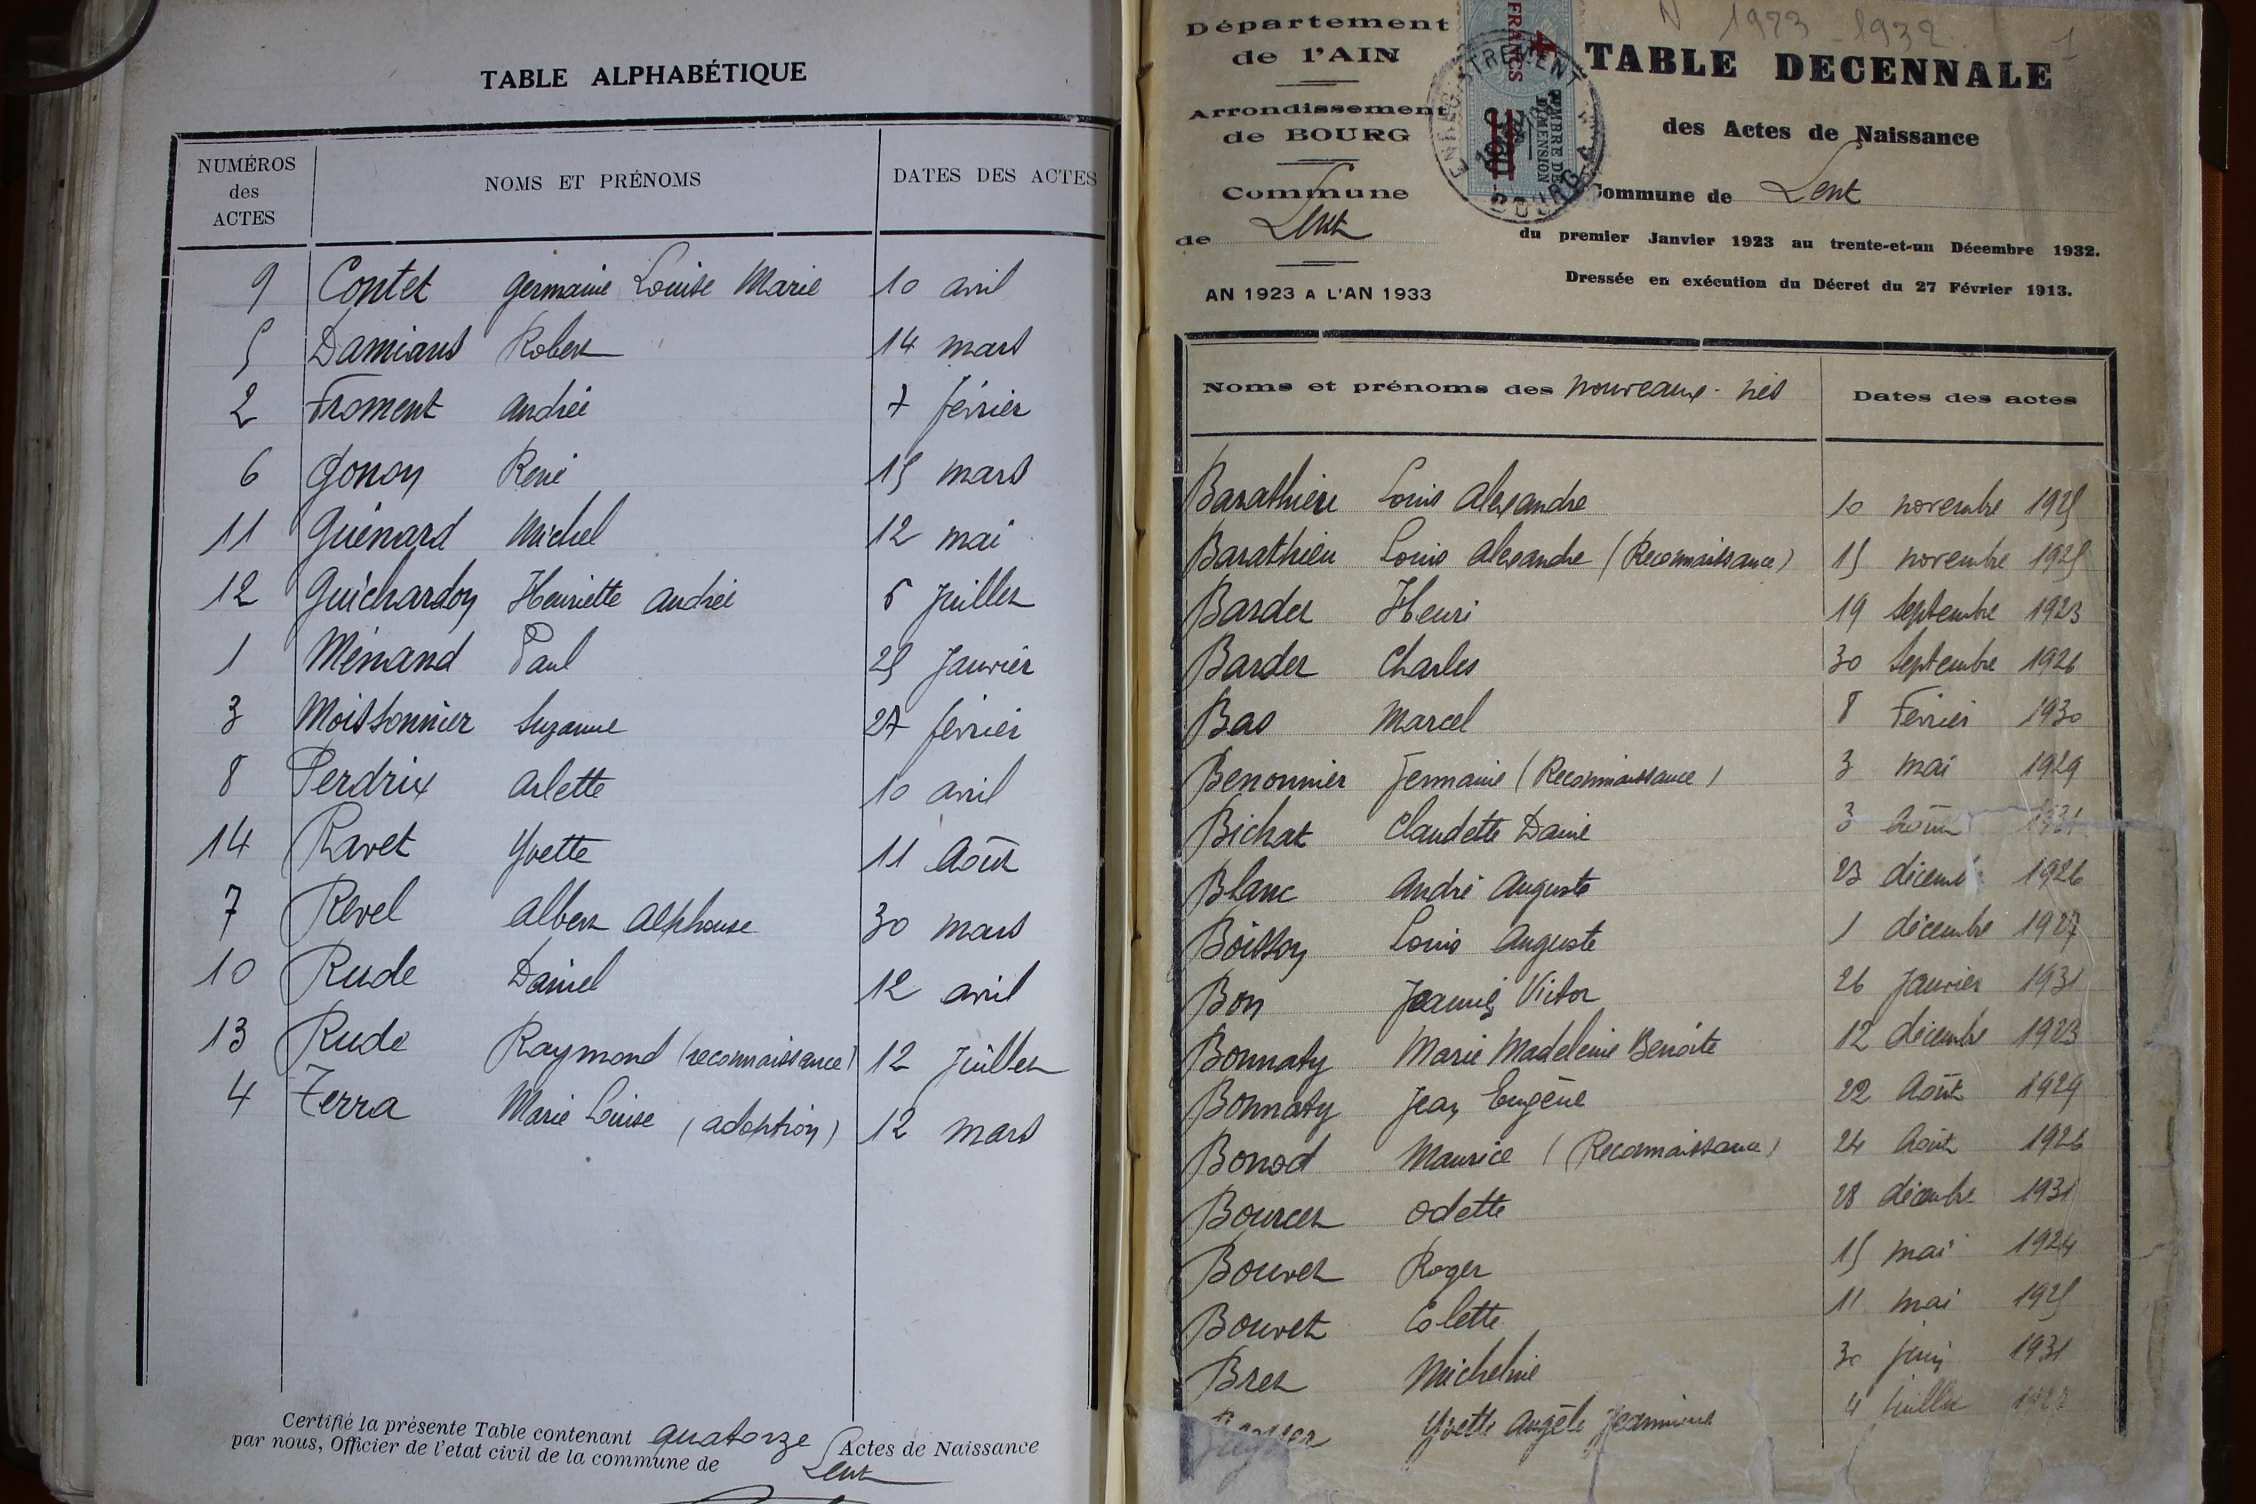 TABLE ALPHABÉTIQUE
NUMÉROS des ACTES NOMS ET PRÉNOMS DATES DES ACTES
9 Contet Germaine Louise Marie 10 avril
5 Damians Robert 14 mars
2 Froment Andrée 7 février
6 Gonon René 15 mars
11 Guénard Michel 12 mai
12 Guichardon Henriette Andrée 5 Juillet
1 Ménand Paul 25 Janvier
3 Moissonnier Suzanne 27 février
8 Perdrix Arlette 10 avril
14 Ravet Yvette 11 Août
7 Revel Albert Alphonse 30 mars
10 Rude Daniel 12 avril
13 Rude Raymond (reconnaissance) 12 Juillet
4 Terra Marie Louise (adoption) 12 mars
Certifié la présente Table contenant quatorze Actes de Naissance
par nous, Officier de l'etat civil de la commune de Lent
N 1923 - 1932. 1
Département
de l'AIN
Arrondissement
de BOURG
Commune
de Lent
AN 1923 A L'AN 1933
4 FRANCS
TIMBRE DE DIMENSION
ENREGISTREMENT
BOURG
TABLE DECENNALE
des Actes de Naissance
Commune de Lent
du premier Janvier 1923 au trente-et-un Décembre 1932.
Dressée en exécution du Décret du 27 Février 1913.
Noms et prénoms des nouveaux-nés Dates des actes
Barathieu Louis Alexandre 10 novembre 1925
Barathieu Louis Alexandre (Reconnaissance) 15 novembre 1925
Bardet Henri 19 Septembre 1923
Bardet Charles 30 Septembre 1926
Bas Marcel 8 Février 1930
Benonnier Germaine (Reconnaissance) 3 mai 1929
Bichat Claudette Danie 3 Août 1931
Blanc André Auguste 23 décemb 1926
Boisson Louis Auguste 1 décembre 1927
Bon Jeannie Victor 26 Janvier 1931
Bonnaty Marie Madeleine Benoîte 12 décembre 1923
Bonnaty Jean Eugène 22 Août 1929
Bonod Maurice (Reconnaissance) 24 Août 1926
Bourcet Odette 28 décembre 1931
Bouvet Roger 15 mai 1924
Bouvet Colette 11 mai 1925
Bret Micheline 30 juin 1931
Yvette Angèle Jeannine 4 Juillet